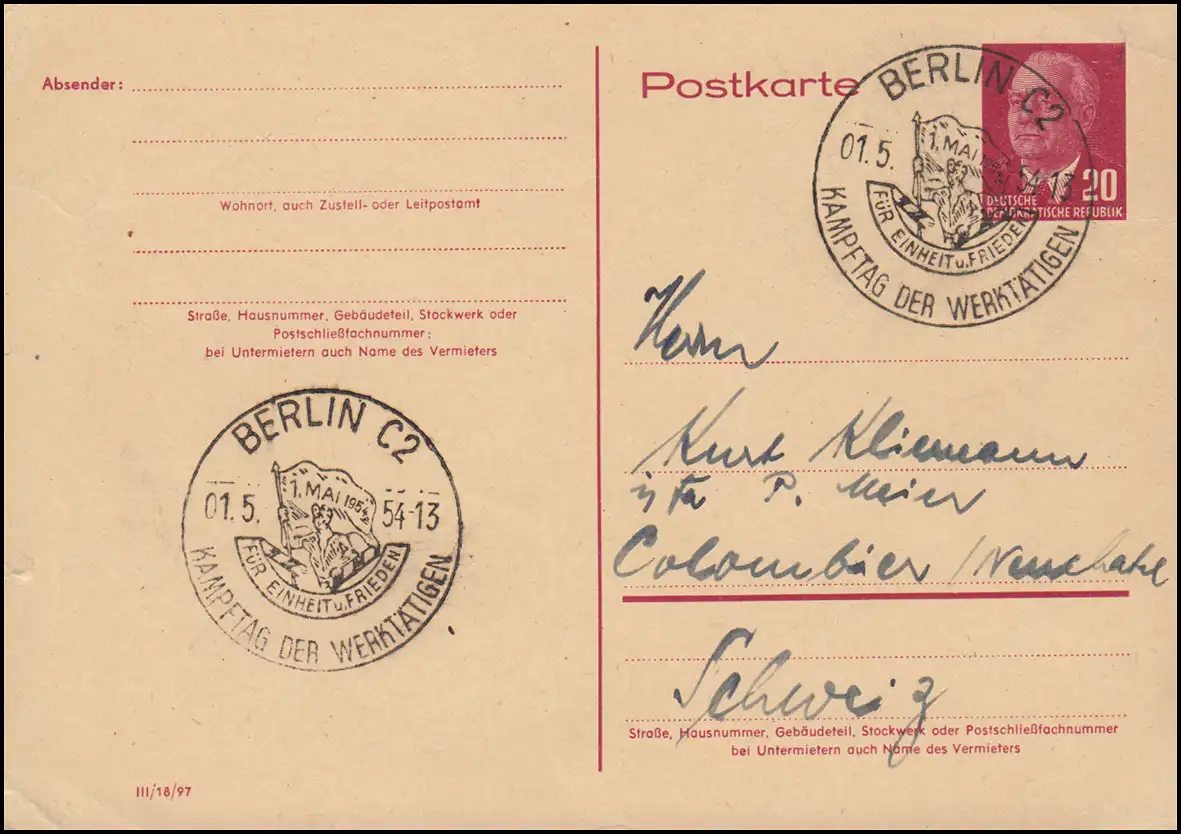 Absender:
Wohnort, auch Zustell- oder Leitpostamt
Straße, Hausnummer, Gebäudeteil, Stockwerk oder
Postschließfachnummer;
bei Untermietern auch Name des Vermieters
BERLIN C2
01.5. 54-13
1. MAI 1954
FÜR EINHEIT u. FRIEDEN
KAMPFTAG DER WERKTÄTIGEN
III/18/97
Postkarte
BERLIN C2
01.5. 54-13
1. MAI 1954
FÜR EINHEIT u. FRIEDEN
KAMPFTAG DER WERKTÄTIGEN
20
DEUTSCHE
DEMOKRATISCHE REPUBLIK
Herrn
Kurt Kliemann
P. Meier
Colombier /
Schweiz
Straße, Hausnummer, Gebäudeteil, Stockwerk oder Postschließfachnummer
bei Untermietern auch Name des Vermieters